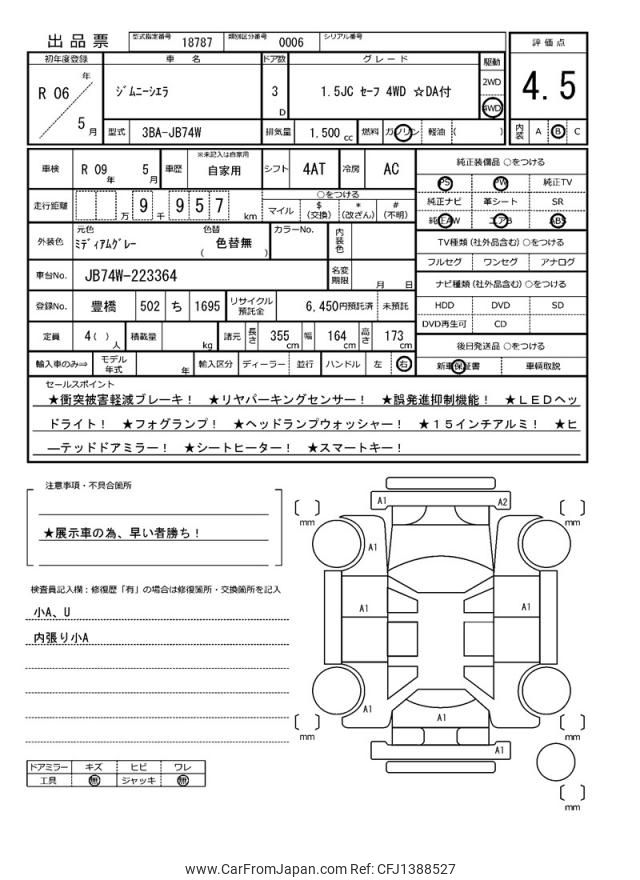 出品票 型式指定番号 18787 類別区分番号 0006 シリアル番号
評価点
4.5
内装 A B C
初年度登録 車名 ドア数 グレード 駆動
R 06 年 5 月
ジムニーシエラ 3 D 1.5JC セーフ 4WD ☆DA付 2WD 4WD
型式 3BA-JB74W 排気量 1.500 cc 燃料 ガソリン 軽油 ( )
車検 R 09 年 5 月 車歴 ※未記入は自家用 自家用 シフト 4AT 冷房 AC
走行距離 万 9 千 9 5 7 km
○をつける
マイル $ (交換) * (改ざん) # (不明)
外装色 元色 ミディアムグレー 色替 ( 色替無 ) カラーNo. 内装色
車台No. JB74W-223364 名変期限 月 日
登録No. 豊橋 502 ち 1695 リサイクル預託金 6,450円預託済 未預託
定員 4( ) 人 積載量 kg 諸元 長さ 355 cm 幅 164 cm 高さ 173 cm
輸入車のみ⇒ モデル年式 年 輸入区分 ディーラー 並行 ハンドル 左 右
純正装備品 ○をつける
PS PW 純正TV
純正ナビ 革シート SR
純正AW エアB ABS
TV種類 (社外品含む) ○をつける
フルセグ ワンセグ アナログ
ナビ種類 (社外品含む) ○をつける
HDD DVD SD
DVD再生可 CD
後日発送品 ○をつける
新車保証書 車輌取説
セールスポイント
★衝突被害軽減ブレーキ! ★リヤパーキングセンサー! ★誤発進抑制機能! ★LEDヘッ
ドライト! ★フォグランプ! ★ヘッドランプウォッシャー! ★15インチアルミ! ★ヒ
ーテッドドアミラー! ★シートヒーター! ★スマートキー!
注意事項・不具合箇所
★展示車の為、早い者勝ち!
検査員記入欄:修復歴「有」の場合は修復箇所・交換箇所を記入
小A、U
内張り小A
ドアミラー キズ ヒビ ワレ
工具 無 ジャッキ 無
A1 A2
mm mm
A1
A1 A1
A1 A1
A1
mm mm
A1
mm
www.CarFromJapan.com Ref: CFJ1388527